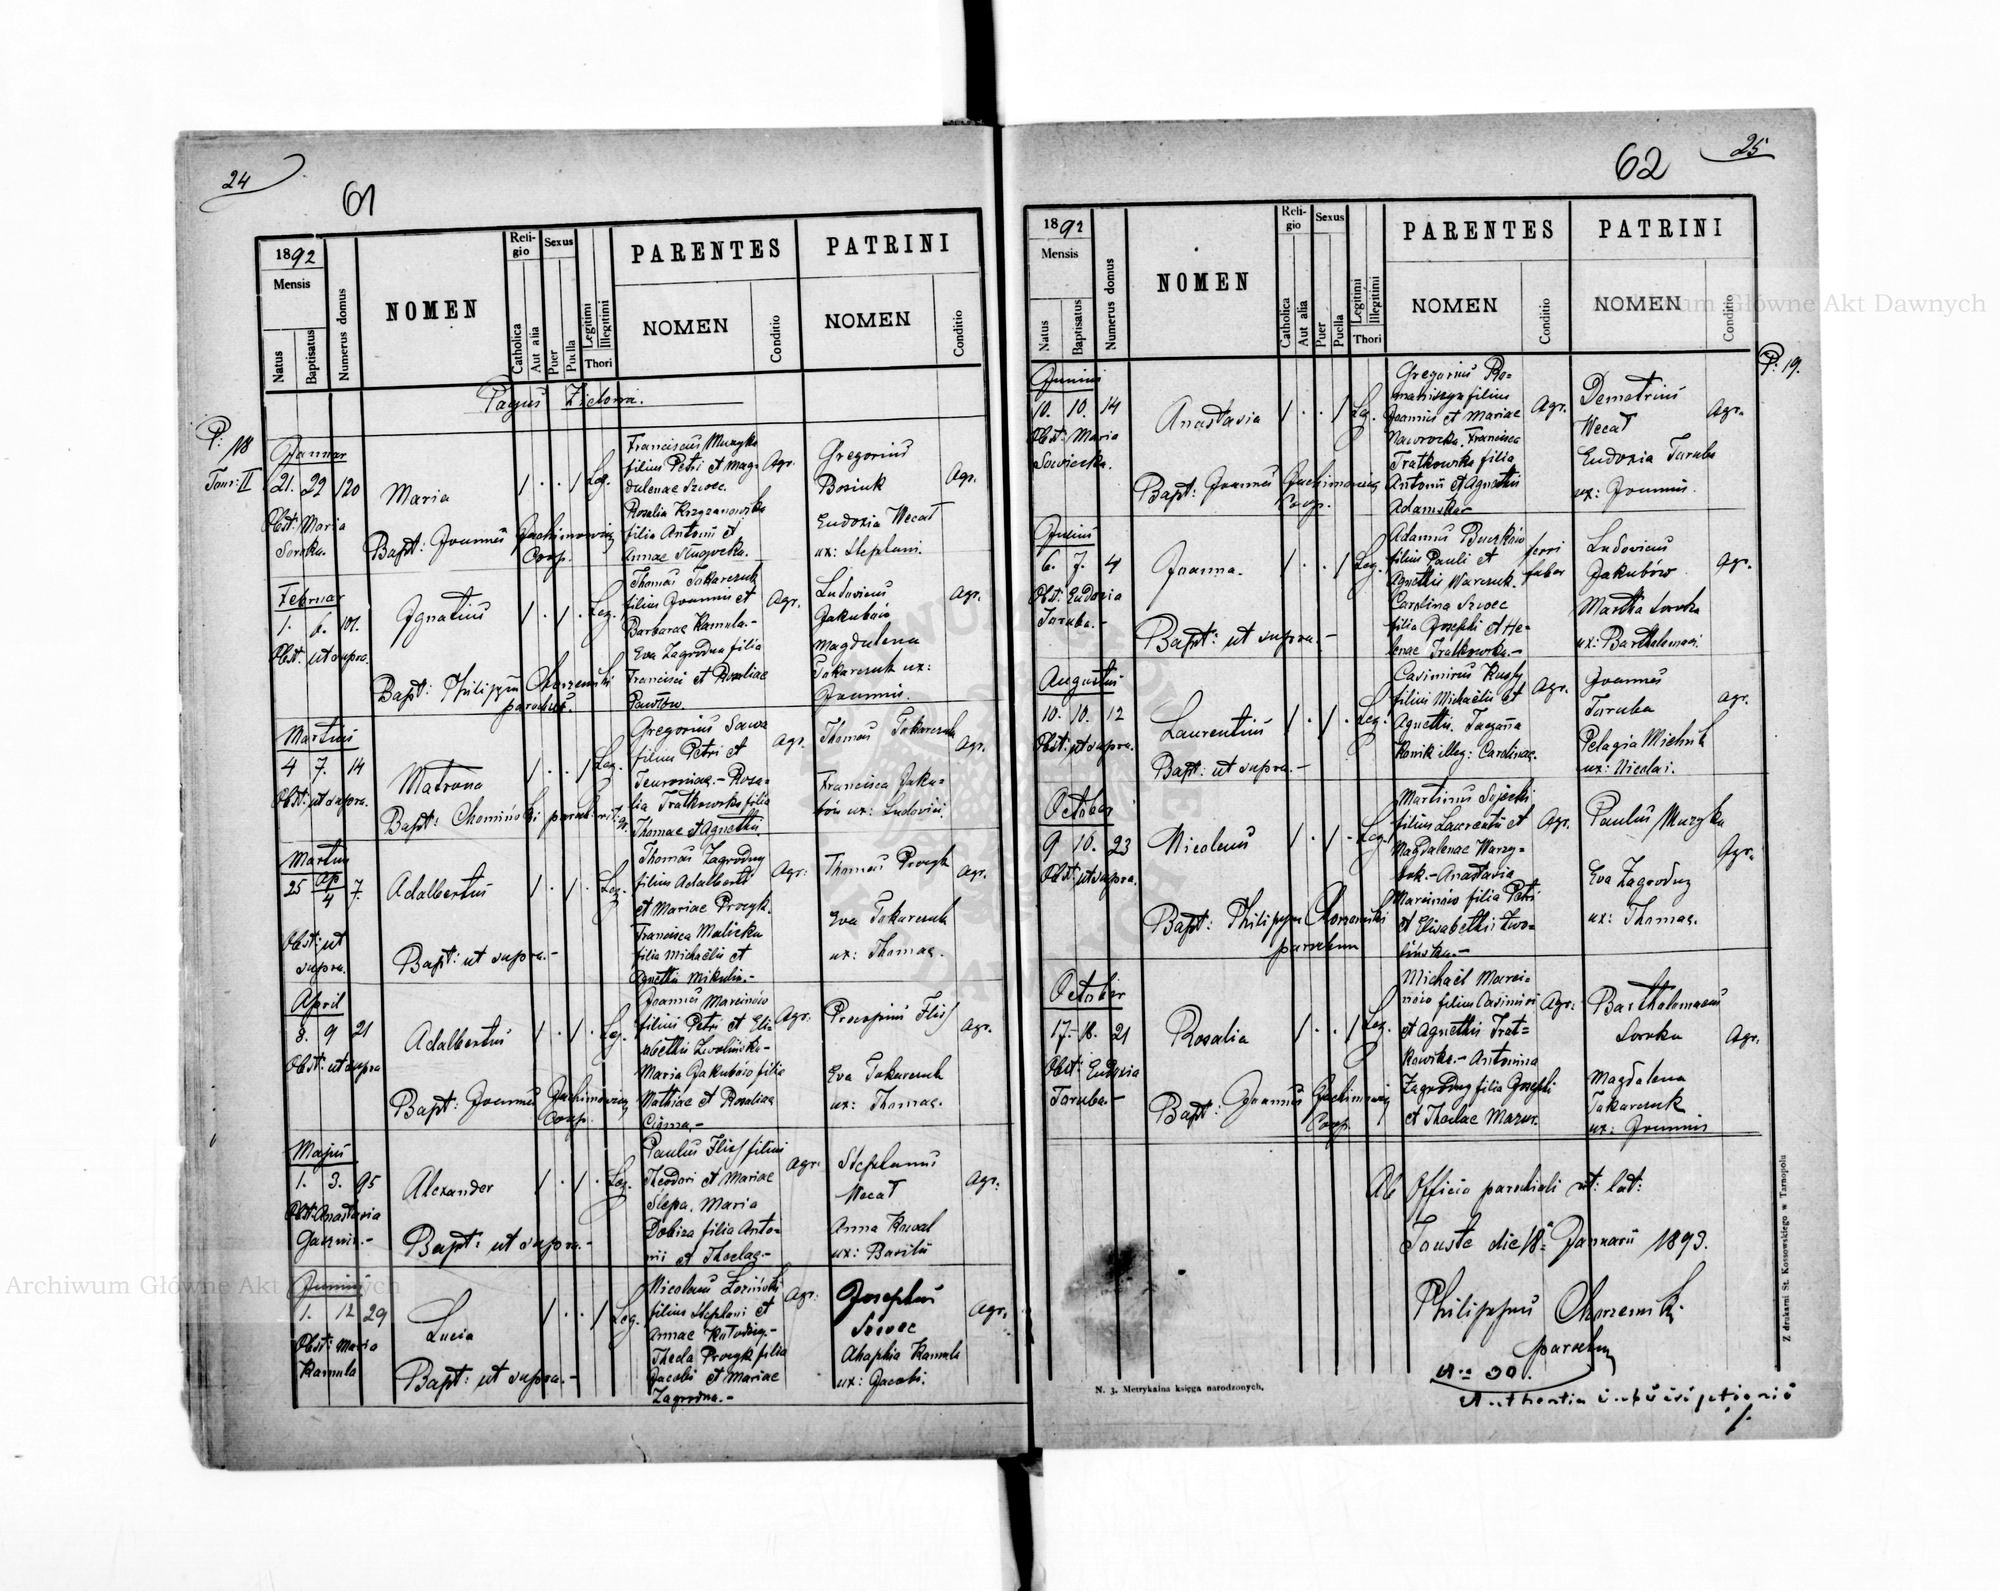 24
61
1892
Mensis
Natus
Baptisatus
Numerus domus
NOMEN
Religio
Catholica
Aut alia
Sexus
Puer
Puella
Legitimi
Illegitimi
Thori
PARENTES
NOMEN
Conditio
PATRINI
NOMEN
Conditio
Pagus Zielona.
P. 18
Tom: II
Januar
21. 22 120
Obst: Maria
Soroka.
Maria
Bapt: Joannes Jachimowicz
Coop.
Leg.
Franciscus Muzyka
filius Petri et Mag-
dalenae Szwec.
Rosalia Krzyzanowska
filia Antonii et
Annae
Agr.
Gregorius
Bosiuk
Eudoxia Wecal
ux: Stephani.
Agr.
Februar
1. 6. 101.
Obst: ut supra.
Ignatius
Bapt: Philippus Chorzemski
parochus.
Leg.
Thomas Tokarczuk
filius Joannis et
Barbarae Kamula.-
Eva Zagrodna filia
Francisci et Rosaliae
Pawłów.
Agr.
Ludovicus
Jakubów
Magdalena
Tokarczuk ux:
Joannis.
Agr.
Martius
4 7. 14
Obst: ut supra.
Matrona
Bapt: Chomiński paroch. rit. gr.
Leg.
Gregorius Sawa
filius Petri et
Rosa-
lia Tratkowska filia
Thomae et Agnethis
Agr.
Thomas Tokarczuk
Francisca Jaku-
bów ux: Ludovici.
Agr.
Martius
25 Ap/4 7.
Obst: ut
supra.
Adalbertus
Bapt: ut supra.-
Leg.
Thomas Zagrodny
filius Adalberti
et Mariae Procyk.
Francisca Malicka
filia Michaelis et
Agnethis Mikulin.-
Agr.
Thomas Procyk
Eva Tokarczuk
ux: Thomae.
Agr.
April
8. 9 21
Obst: ut supra
Adalbertus
Bapt: Joannes Jachimowicz
Coop.
Leg.
Joannes Marcinów
filius Petri et Eli-
sabethis Zwolińska-
Maria Jakubów filia
Mathiae et Rosaliae
Agr.
Procopius Flis
Eva Tokarczuk
ux: Thomae.
Agr.
Majus
1. 3. 95
Obst: Anastasia
Alexander
Bapt: ut supra.-
Leg.
Paulus Flis filius
Theodori et Mariae
Slepa. Maria
filia Anto-
nii et Theclae.-
Agr.
Stephanus
Wecal
Anna Kowal
ux: Basilii
Agr.
Junius
1. 12 29
Obst: Maria
Kamula
Lucia
Bapt: ut supra.-
Leg.
Nicolaus
filius Stephani et
Annae
Thecla Procyk filia
Jacobi et Mariae
Zagrodna.-
Agr.
Josephus
Szwec
Ahaphia Kamula
ux: Jacobi.
Agr.
62
25
1892
Mensis
Natus
Baptisatus
Numerus domus
NOMEN
Religio
Catholica
Aut alia
Sexus
Puer
Puella
Legitimi
Illegitimi
Thori
PARENTES
NOMEN
Conditio
PATRINI
NOMEN
Conditio
P. 19.
Junius
10. 10. 14
Obst: Maria
Sawicka.
Anastasia
Bapt: Joannes Jachimowicz
Coop.
Leg.
Gregorius Ro-
filius
Joannis et Mariae
Nawrocka. Francisca
Tratkowska filia
Antonii et Agnethis
Adamska
Agr.
Demetrius
Wecal
Eudoxia Taruba
ux: Joannis.
Agr.
Julius
6. 7. 4
Obst: Eudoxia
Taruba.-
Joanna.
Bapt: ut supra.-
Leg.
Adamus
filius Pauli et
Agnethis
Carolina Szwec
filia Josephi et He-
lenae Tratkowska.-
ferri
faber
Ludovicus
Jakubów.
Martha Soroka
ux: Bartholomaei.
Agr.
Augustus
10. 10. 12
Obst: ut supra.
Laurentius
Bapt: ut supra.-
Leg.
Casimirus
filius Michaelis et
Agnethis.
illeg: Carolinae.
Agr.
Joannes
Taruba
Pelagia Michnik
ux: Nicolai.
Agr.
October
9 10. 23
Obst: ut supra.
Nicolaus
Bapt: Philippus Chorzemski
parochus
Leg.
Martinus Sojecki
filius Laurentii et
Magdalenae Warzy-
Anastasia
Marcinów filia Petri
et Elisabethis Zwo-
lińska.-
Agr.
Paulus Muzyka
Eva Zagrodny
ux: Thomae.
Agr.
October
17- 18. 21
Obst: Eudoxia
Taruba.-
Rosalia
Bapt: Joannes Jachimowicz
Coop.
Leg.
Michaël Marci-
nów filius Casimiri
et Agnethis Trat-
kowska.- Antonina
Zagrodny filia Josephi
et Theclae Mazur.
Agr.
Bartholomaeus
Soroka
Magdalena
Tokarczuk
ux: Joannis
Agr.
Ab Officio parochiali rit: lat:
Touste die 18 Januarii 1893.
Philippus Chorzemski
parochus
N. 3. Metrykalna księga narodzonych.
Z drukarni St. Kossowskiego w Tarnopolu
Archiwum Główne Akt Dawnych
Archiwum Główne Akt Dawnych